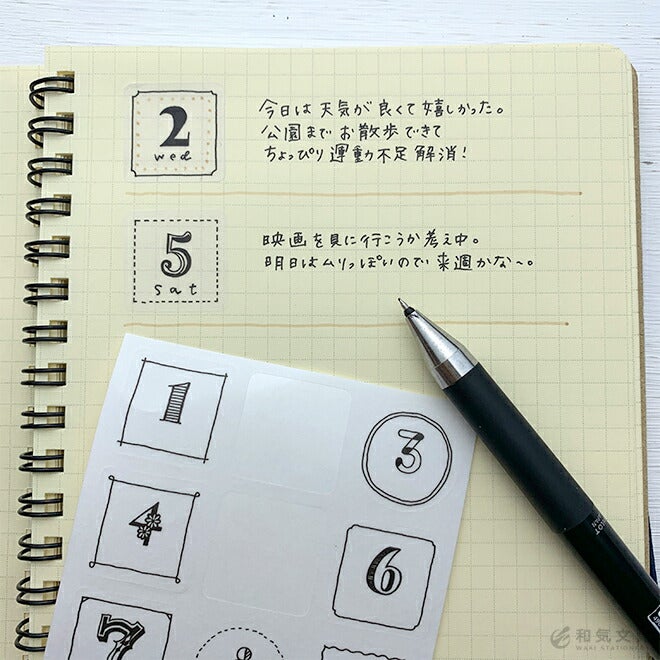 2
wed
今日は天気が良くて嬉しかった。
公園までお散歩できて
ちょっぴり運動不足解消！
5
sat
映画を見に行こうか考え中。
明日はムリっぽいので来週かな〜。
1
3
4
6
7
和気文
WAKI STATIONERY